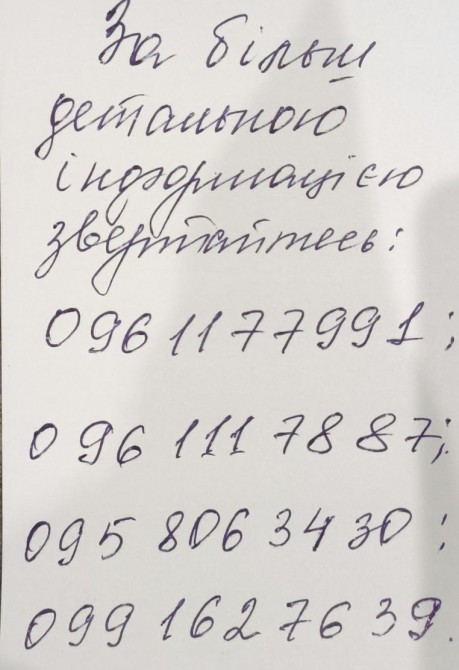 За більш
детальною
інформацією
звертайтесь:
096 11 77 991;
096 111 78 87;
095 806 34 30:
099 162 76 39.